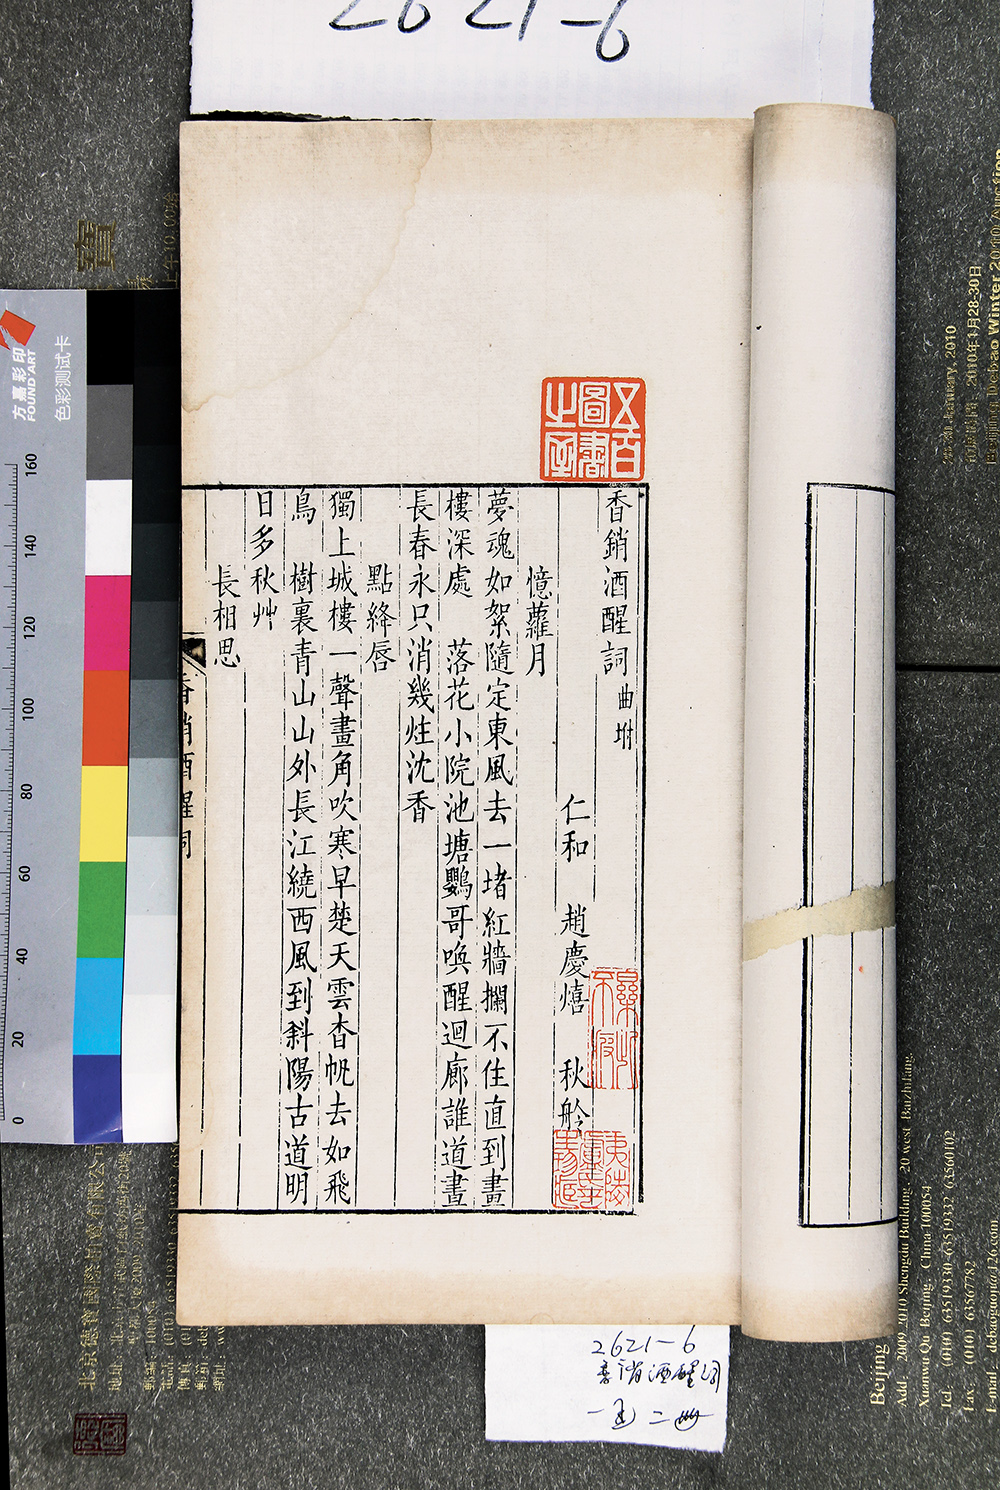 2621-6
五百
圖書
之室
香銷酒醒詞 曲坿
仁和 趙慶熺 秋舲
憶蘿月
夢魂如絮隨定東風去一堵紅牆攔不住直到畫
樓深處 落花小院池塘鸚哥喚醒迴廊誰道晝
長春永只消幾炷沈香
點絳唇
獨上城樓一聲畫角吹寒早楚天雲杳帆去如飛
鳥 樹裏青山山外長江繞西風到斜陽古道明
日多秋艸
長相思
香銷酒醒詞
2621-6
香消酒醒詞
一函二冊
方嘉彩印
FOUND ART
色彩测试卡
0 20 40 60 80 100 120 140 160
寶
2010年1月28-30日
Beijing
Add. 2009-2010 Shengda Building, 20 west Baizhifang,
Xuanwu Qu Beijing, China 100054
Tel. (010) 63519330 63519332 63560102
Fax. (010) 63567782
E-mail. debaoguoji@126.com